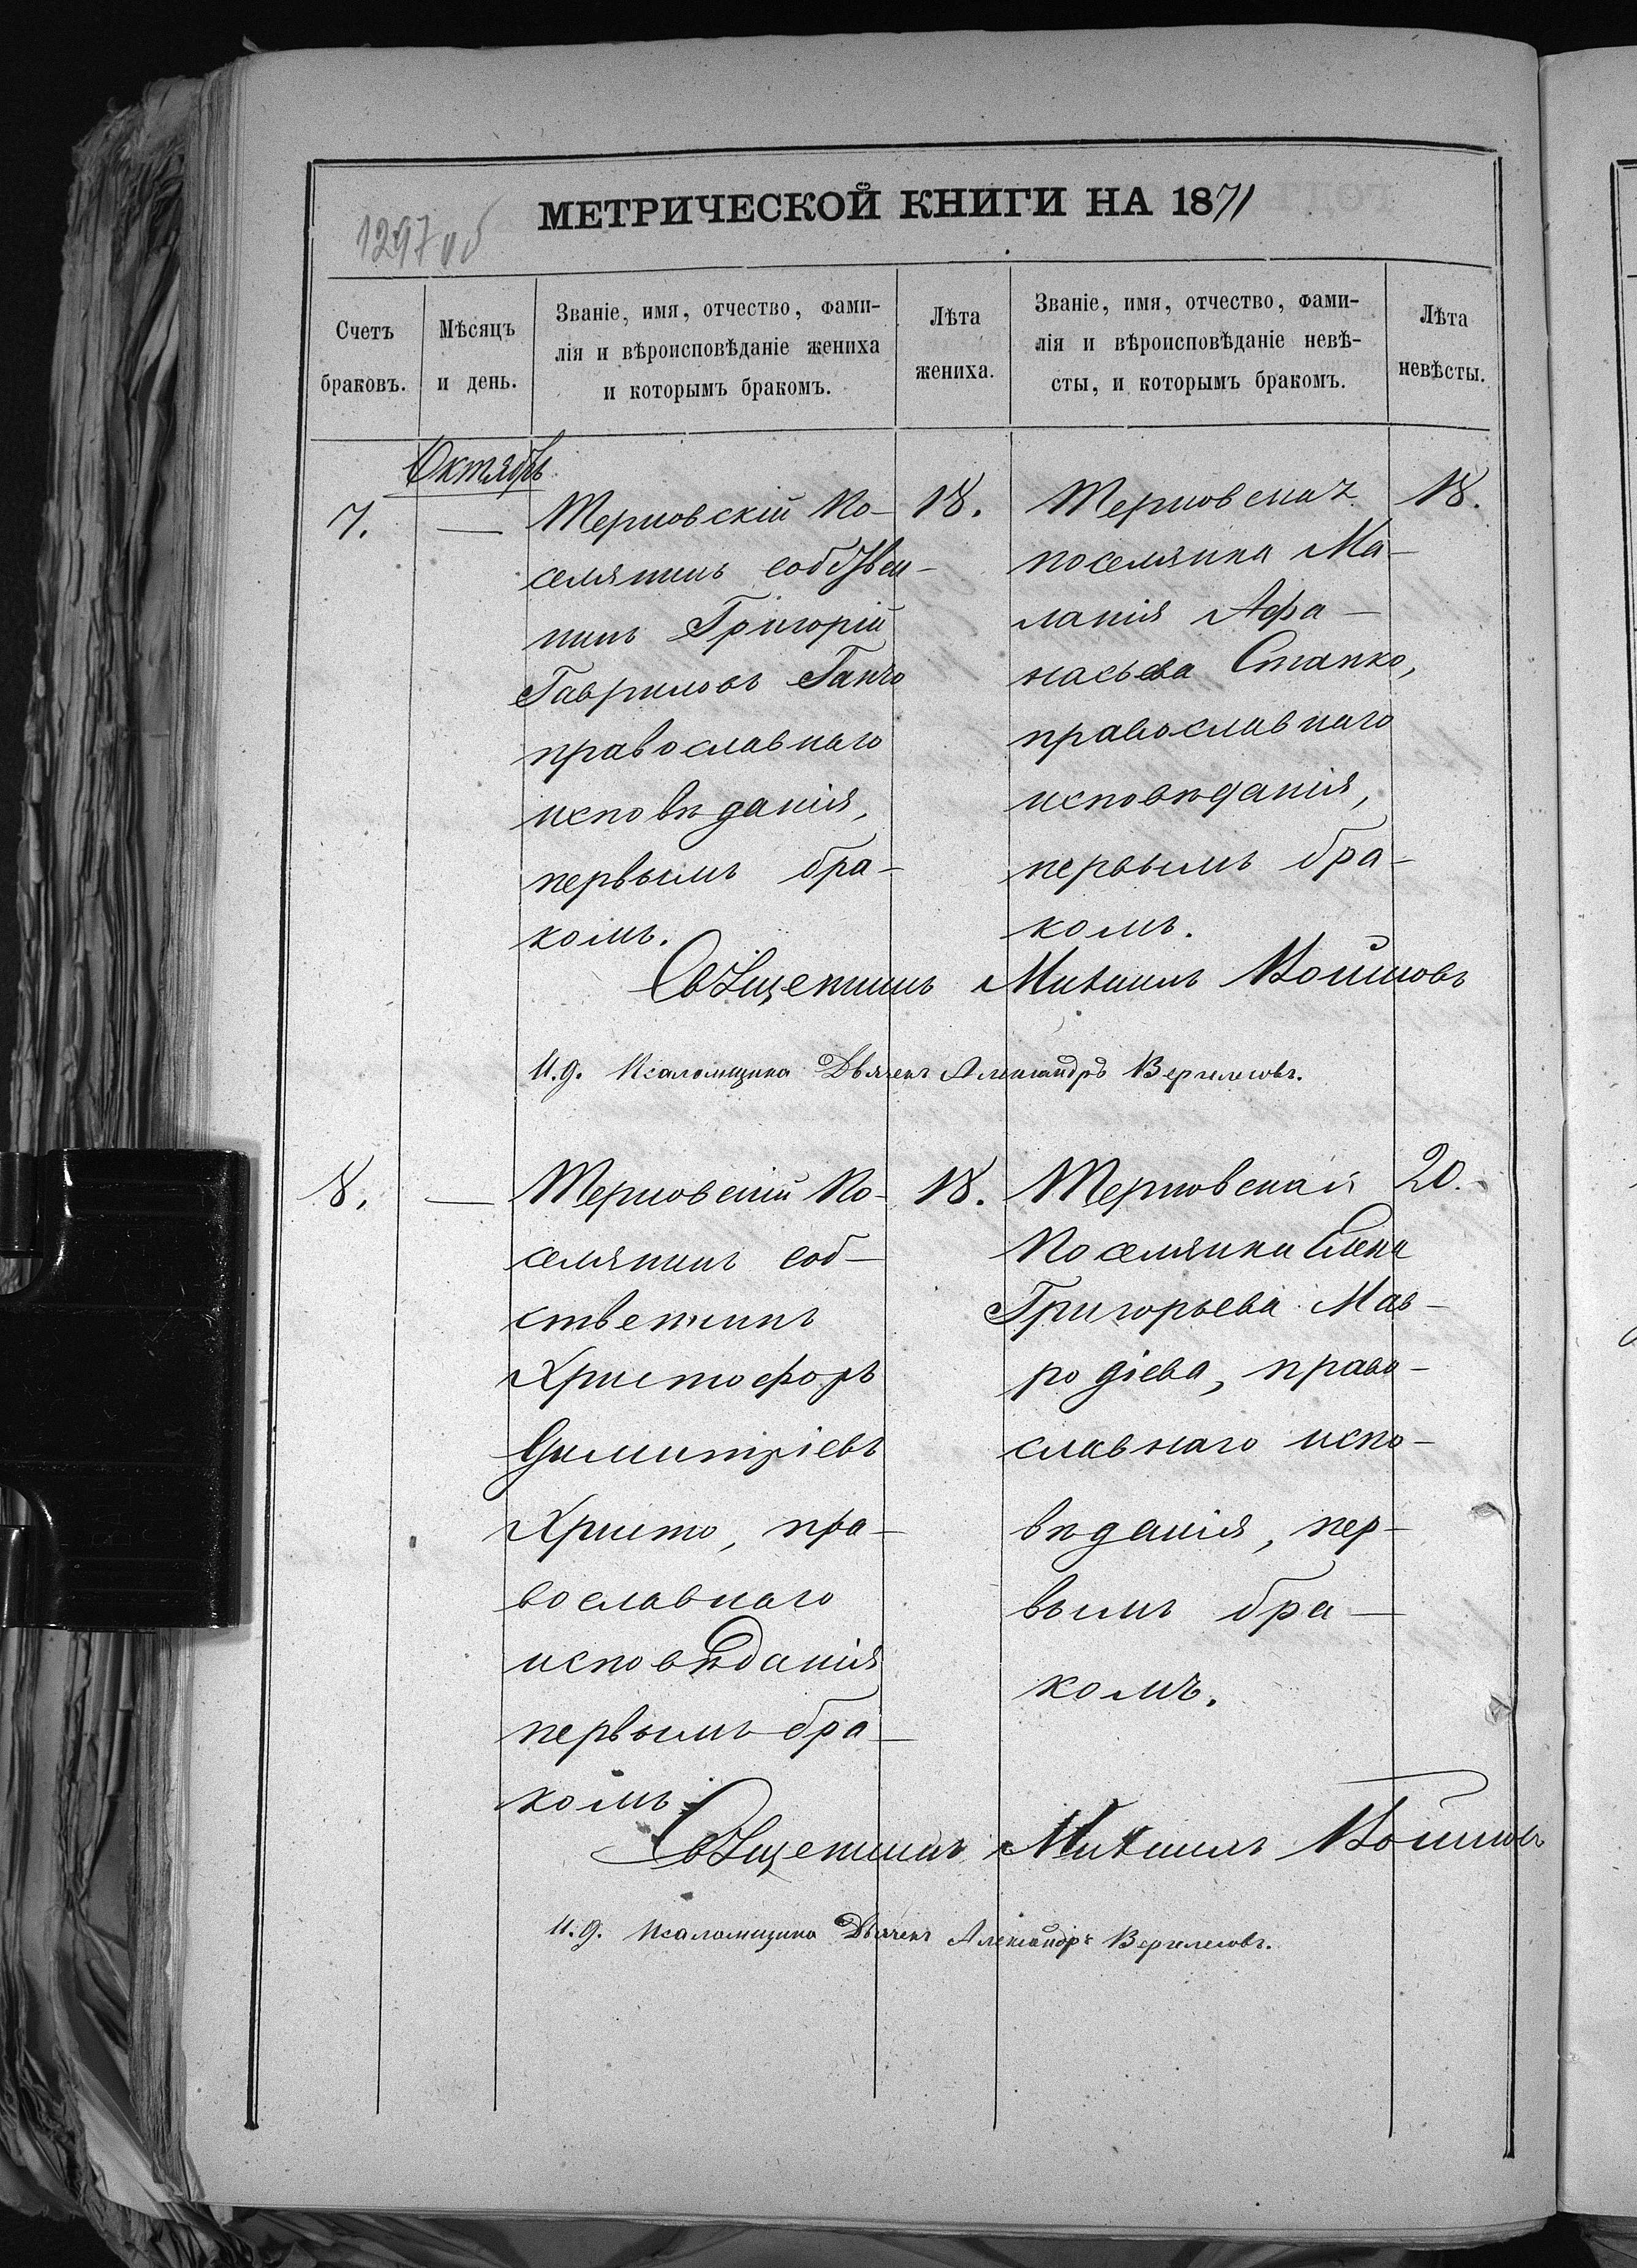 МЕТРИЧЕСКОЙ КНИГИ НА 1871
1297 об
Счетъ браковъ.
Мѣсяцъ и день.
Званіе, имя, отчество, фами-
лія и вѣроисповѣданіе жениха
и которымъ бракомъ.
Лѣта жениха.
Званіе, имя, отчество, фами-
лія и вѣроисповѣданіе невѣ-
сты, и которымъ бракомъ.
Лѣта невѣсты.
Октябрь
7.
—
Терновскій По-
селянинъ собствен-
никъ Григорій
Гавриловъ Ганчо
православнаго
исповѣданія,
первымъ бра-
комъ.
18.
Терновская
поселянка Ма-
ланія Афа-
насьева Станко,
православнаго
исповѣданія,
первымъ бра-
комъ.
18.
Священникъ Михаилъ Войновъ
И.д. Псаломщика Дьячекъ Александръ
8.
—
Терновскій По-
селянинъ соб-
ственникъ
Христофоръ
Димитріевъ
Христо, пра-
вославнаго
исповѣданія
первымъ бра-
комъ.
18.
Терновская
Поселянка Елена
Григорьева Мав-
родіева, право-
славнаго испо-
вѣданія, пер-
вымъ бра-
комъ.
20.
Священникъ Михаилъ Войновъ
И.д. Псаломщика Дьячекъ Александръ